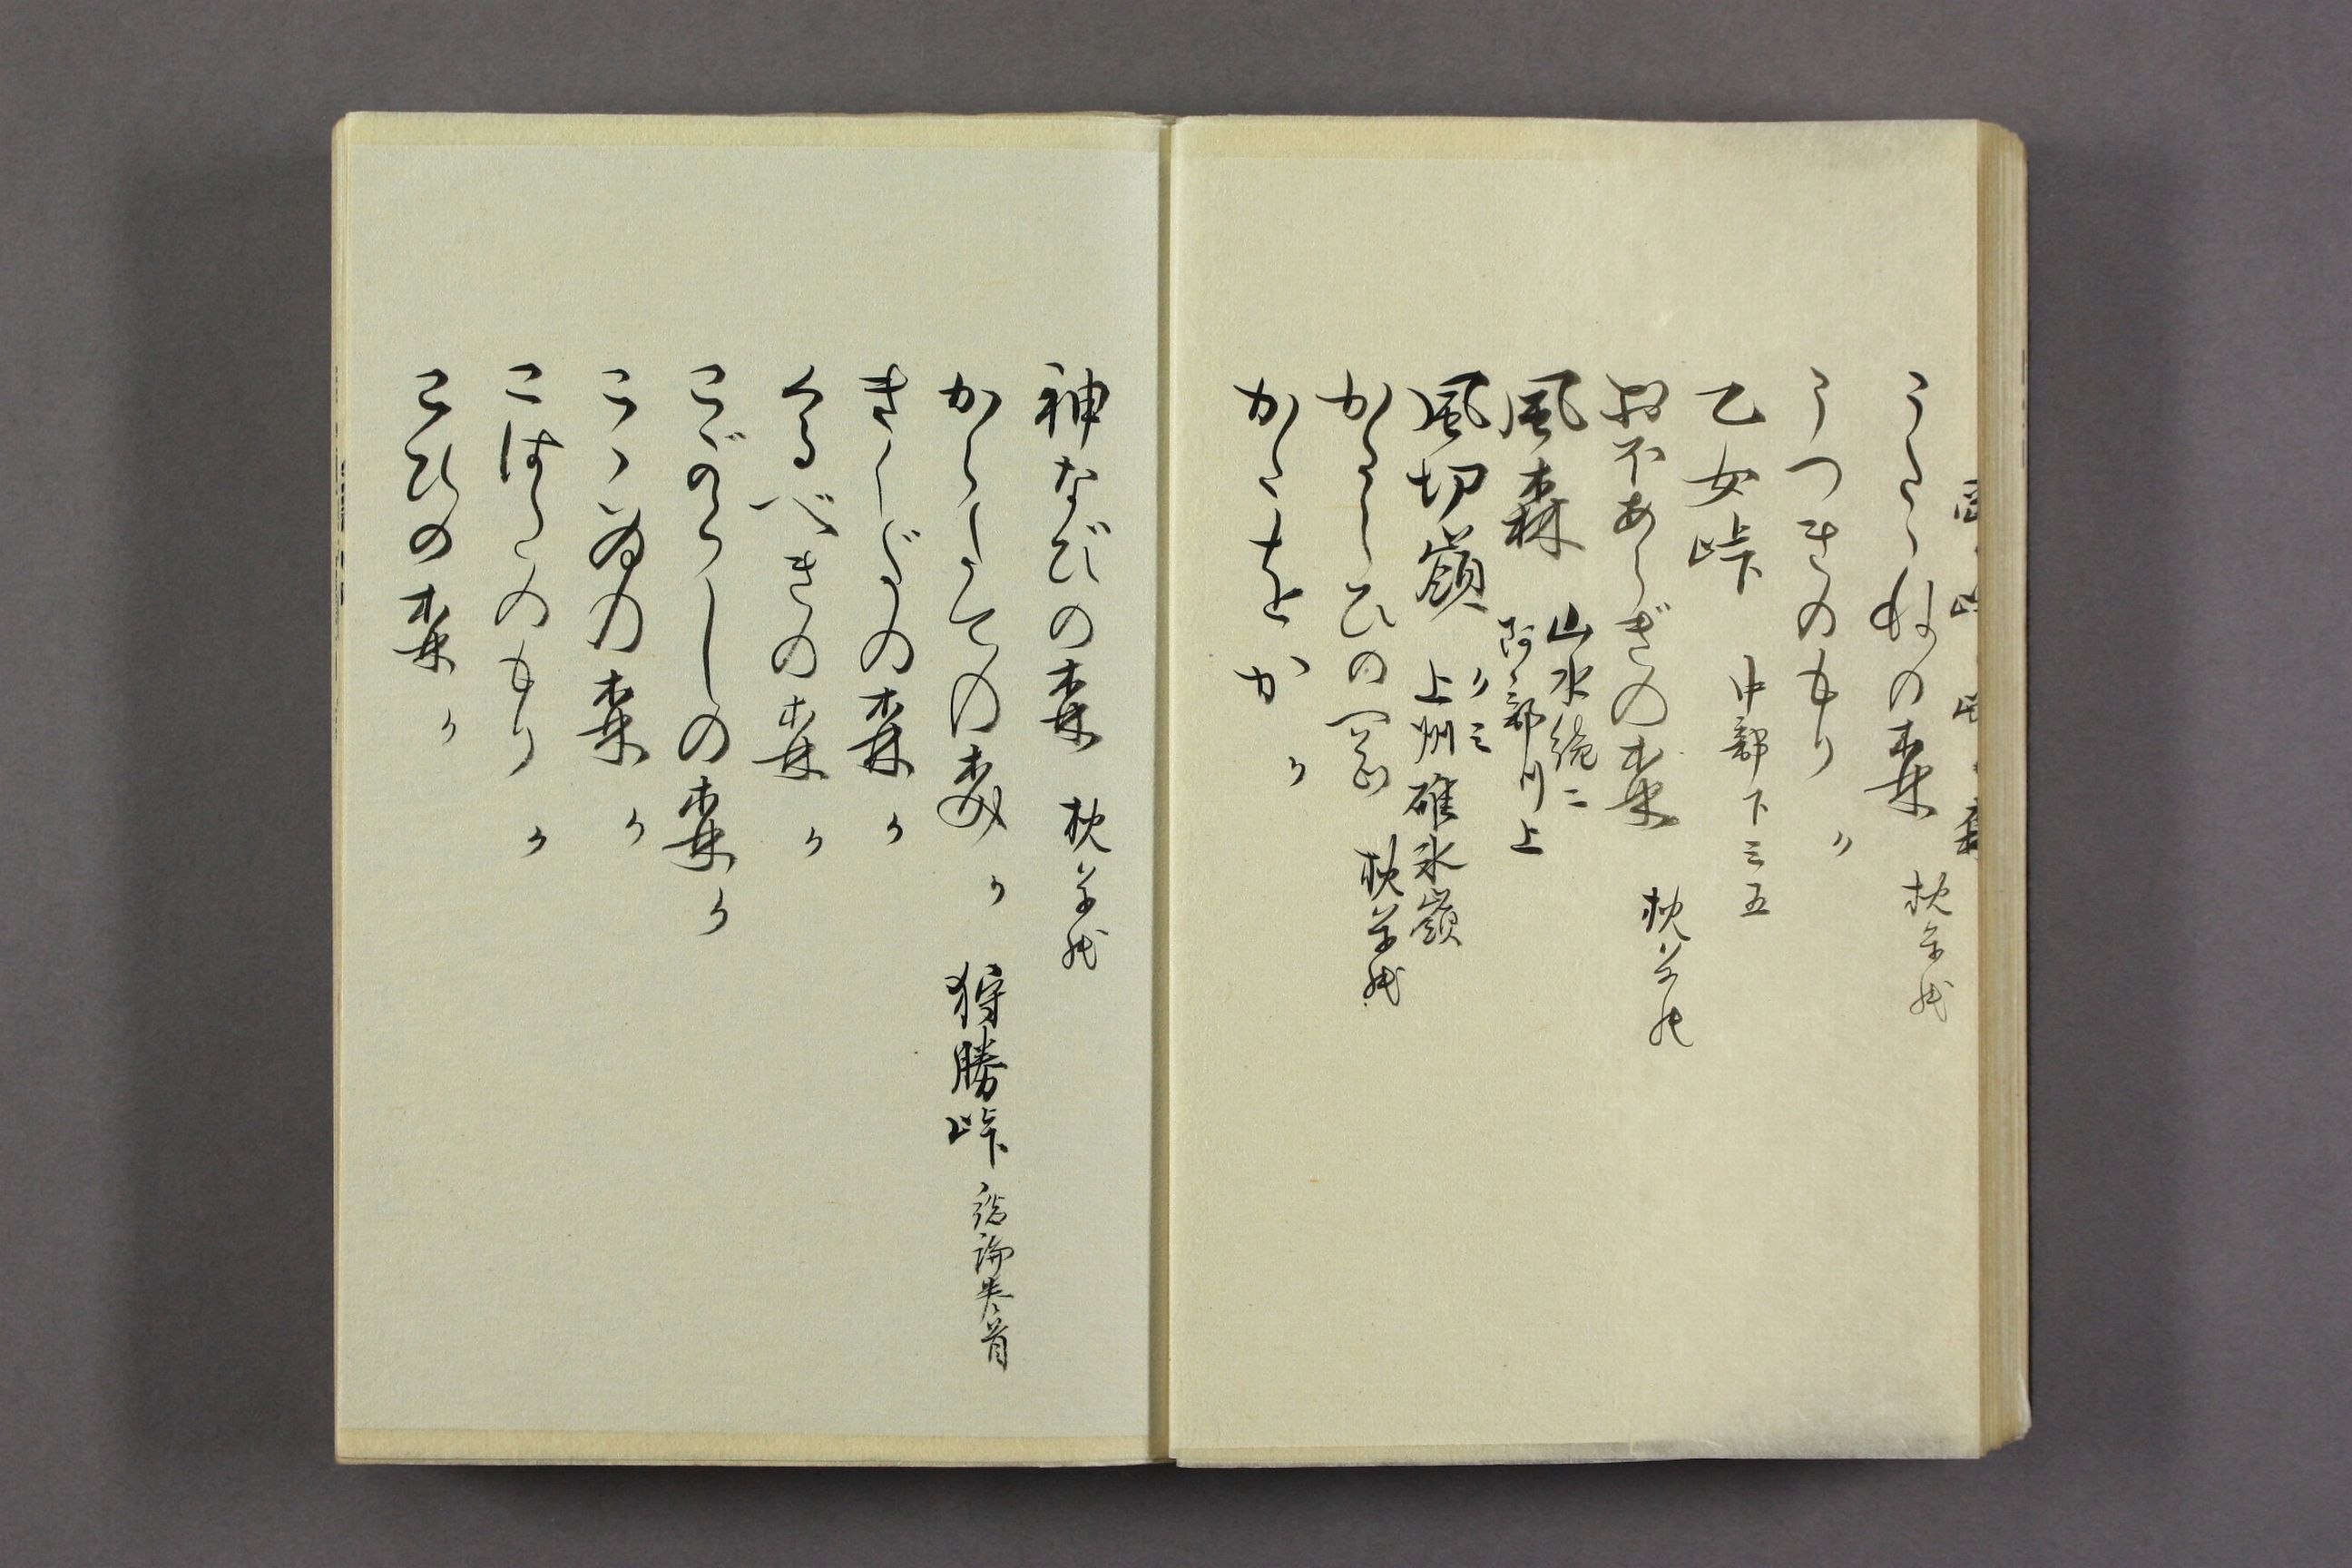 うたゝねの森 枕草紙
うつきのもり 〃
乙女峠 中部下三五
お不あらぎの森 枕草紙
風森 山水絶二
阿部川上
風切嶺 〃三
上州碓氷嶺
かたらひの岡 枕草紙
かたをか 〃
神なびの森 枕草紙
の森 〃 狩勝峠 総論巻首
きくだの森 〃
くるべきの森 〃
こがらしの森 〃
こゝゐの森 〃
こはたのもり 〃
こひの森 〃